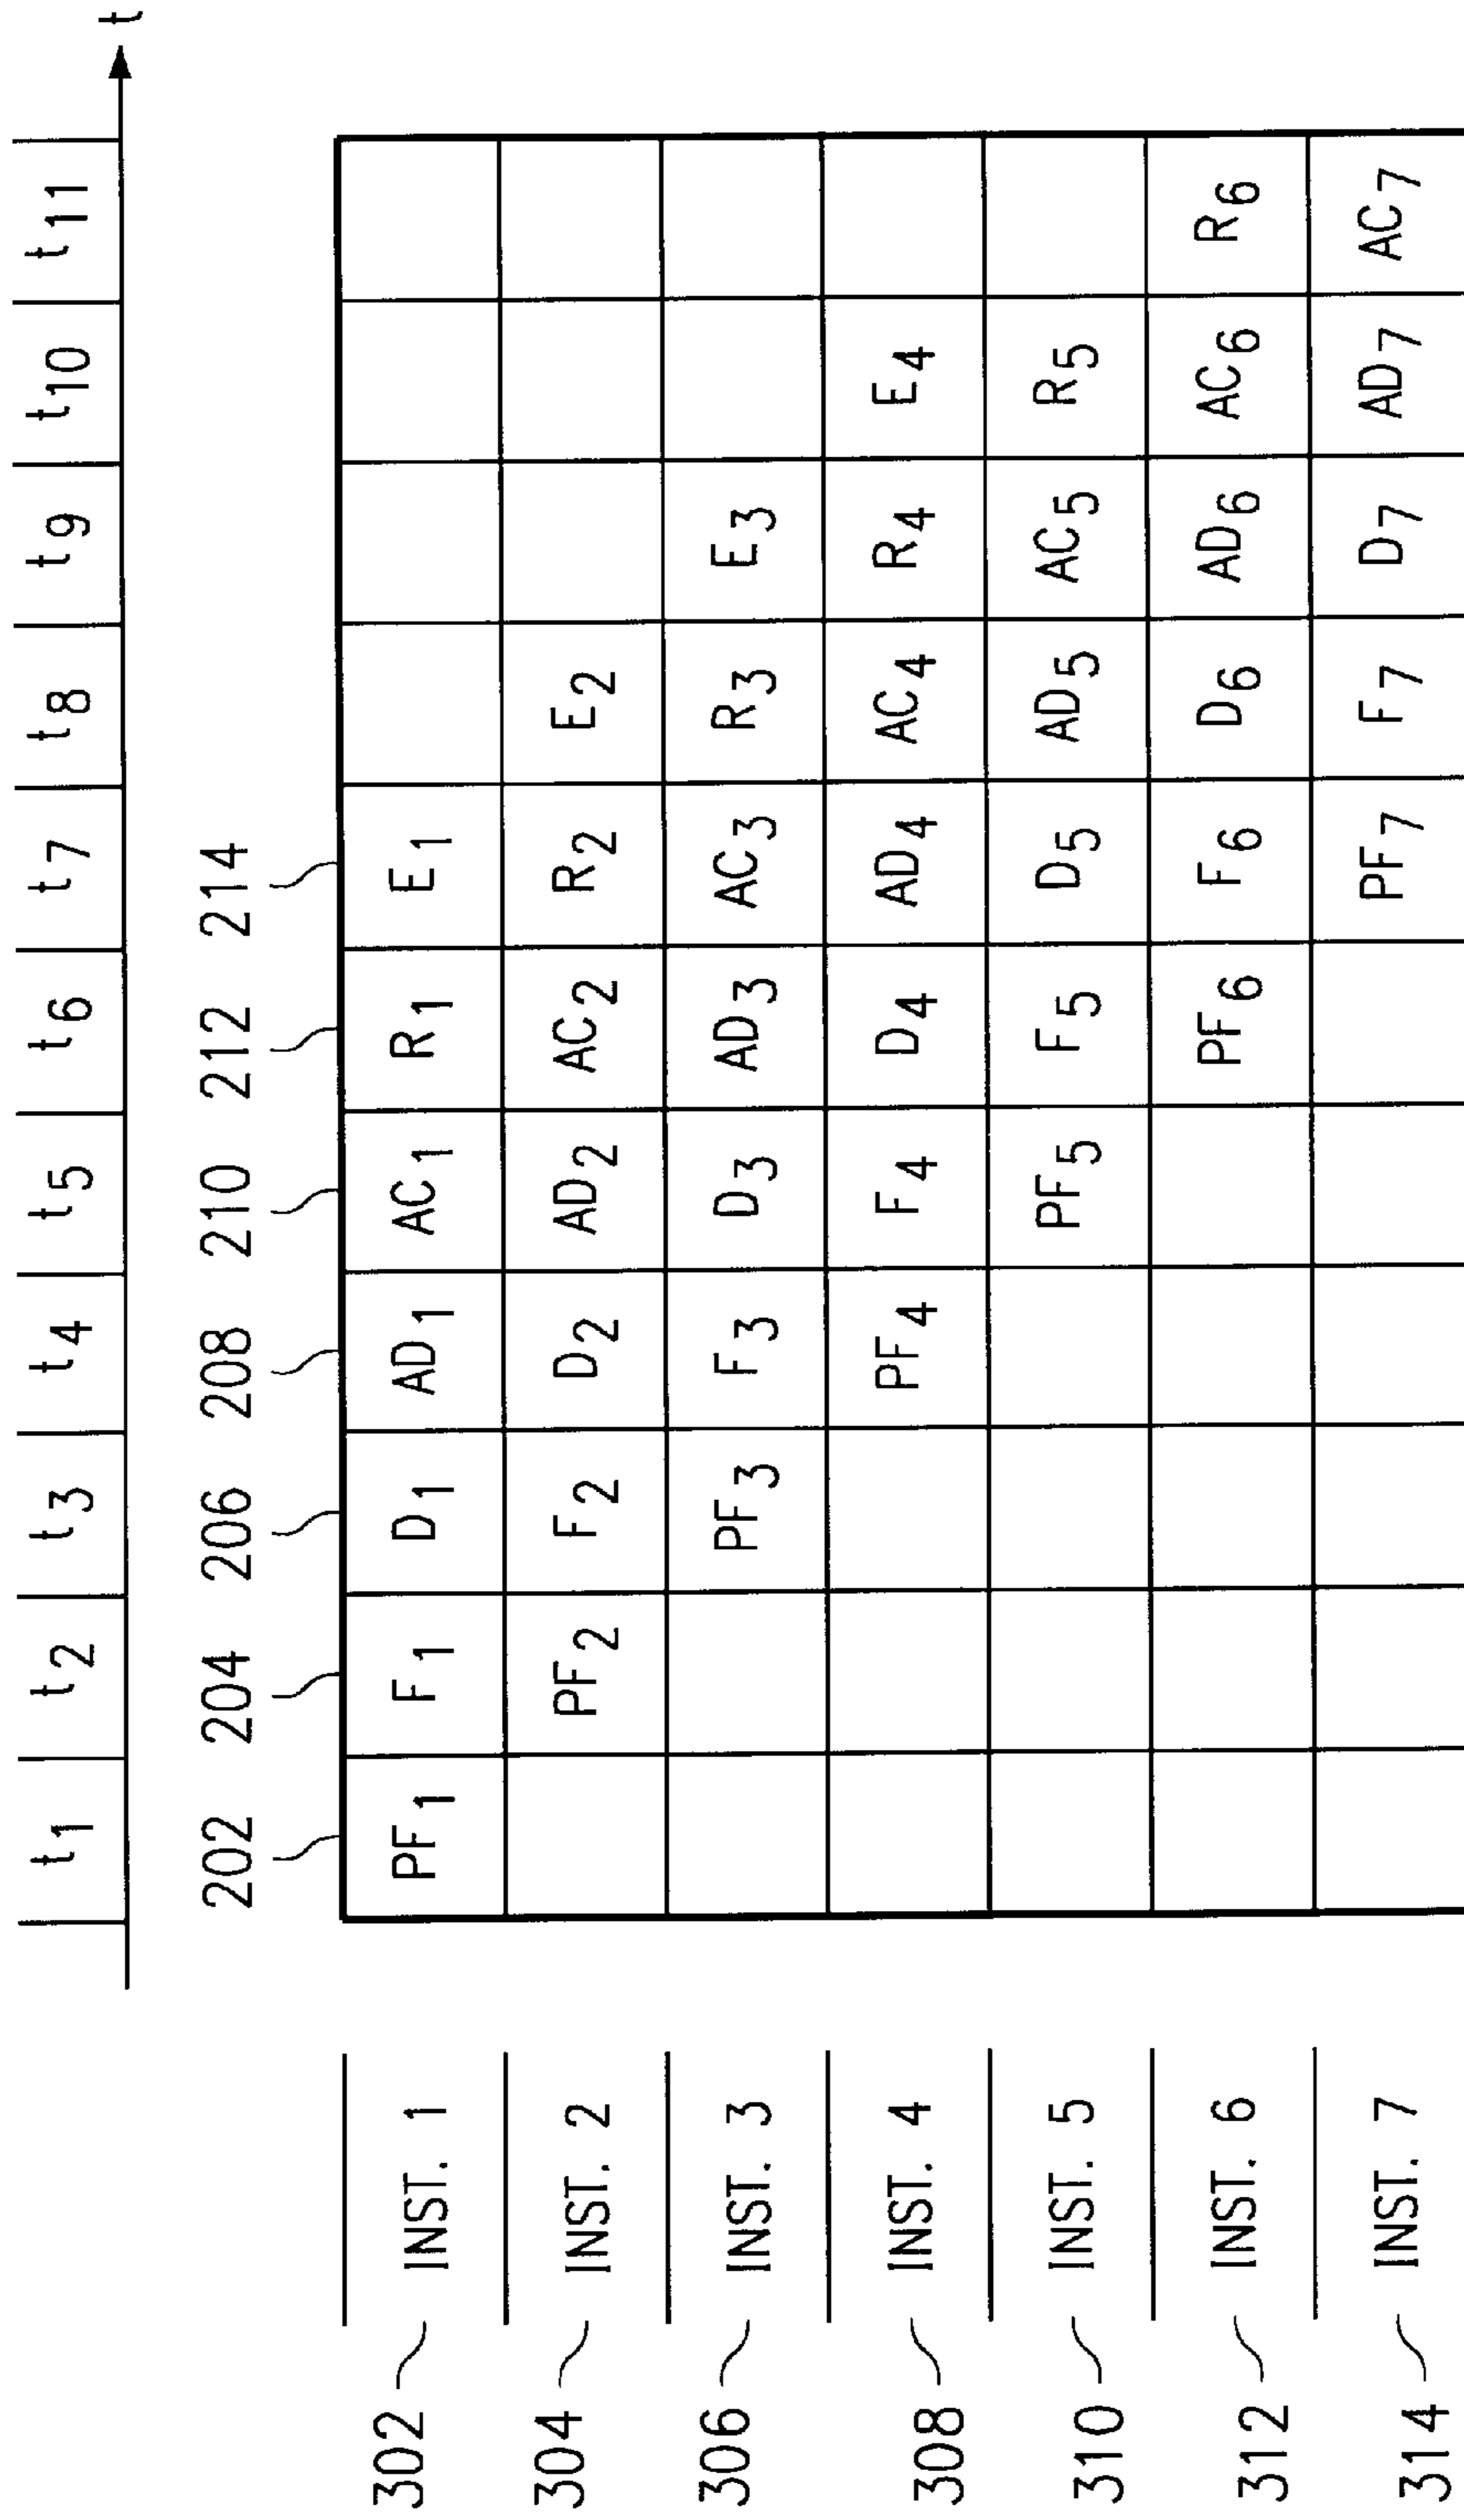 t1 t2 t3 t4 t5 t6 t7 t8 t9 t10 t11 t
202 204 206 208 210 212 214
302 INST. 1 PF1 F1 D1 AD1 AC1 R1 E1
304 INST. 2 PF2 F2 D2 AD2 AC2 R2 E2
306 INST. 3 PF3 F3 D3 AD3 AC3 R3 E3
308 INST. 4 PF4 F4 D4 AD4 AC4 R4 E4
310 INST. 5 PF5 F5 D5 AD5 AC5 R5
312 INST. 6 PF6 F6 D6 AD6 AC6 R6
314 INST. 7 PF7 F7 D7 AD7 AC7